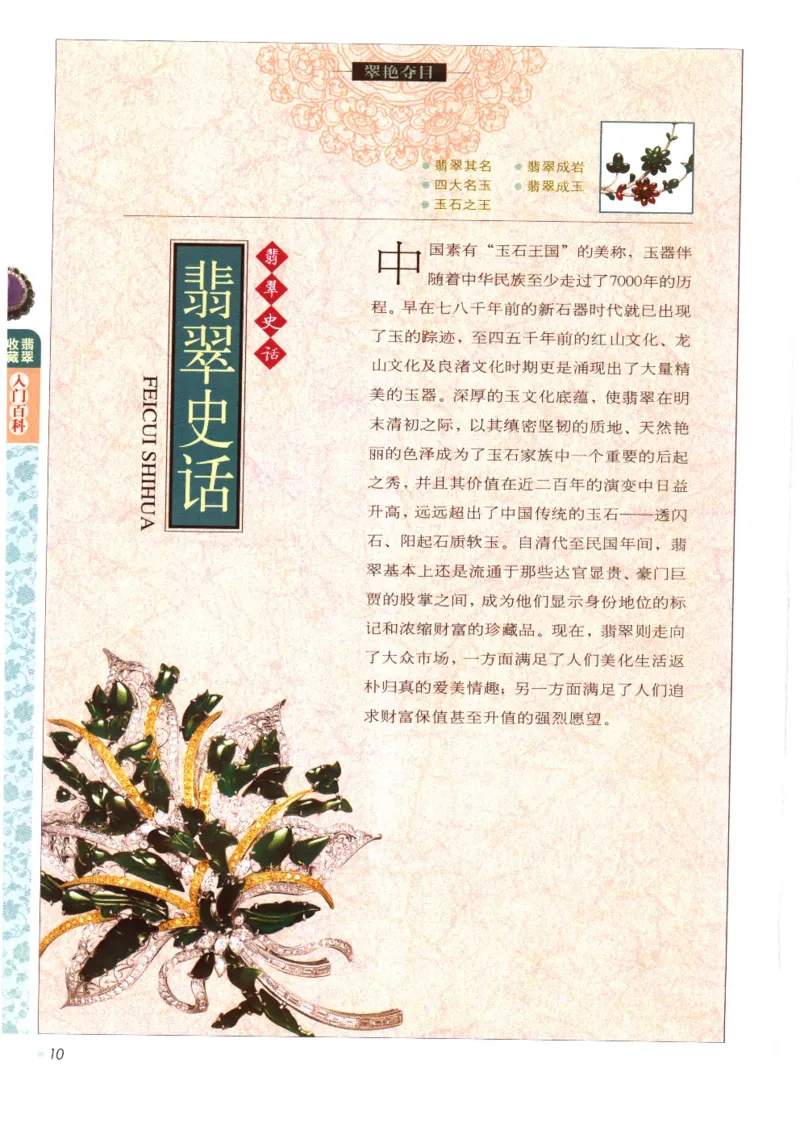 翠艳夺目
翡翠其名
翡翠成岩
四大名玉
翡翠成玉
玉石之王
翡翠史话
翡翠史话
FEICUI SHIHUA
翡翠
收藏
入门百科
中国素有“玉石王国”的美称，玉器伴
随着中华民族至少走过了7000年的历
程。早在七八千年前的新石器时代就已出现
了玉的踪迹，至四五千年前的红山文化、龙
山文化及良渚文化时期更是涌现出了大量精
美的玉器。深厚的玉文化底蕴，使翡翠在明
末清初之际，以其缜密坚韧的质地、天然艳
丽的色泽成为了玉石家族中一个重要的后起
之秀，并且其价值在近二百年的演变中日益
升高，远远超出了中国传统的玉石——透闪
石、阳起石质软玉。自清代至民国年间，翡
翠基本上还是流通于那些达官显贵、豪门巨
贾的股掌之间，成为他们显示身份地位的标
记和浓缩财富的珍藏品。现在，翡翠则走向
了大众市场，一方面满足了人们美化生活返
朴归真的爱美情趣；另一方面满足了人们追
求财富保值甚至升值的强烈愿望。
10